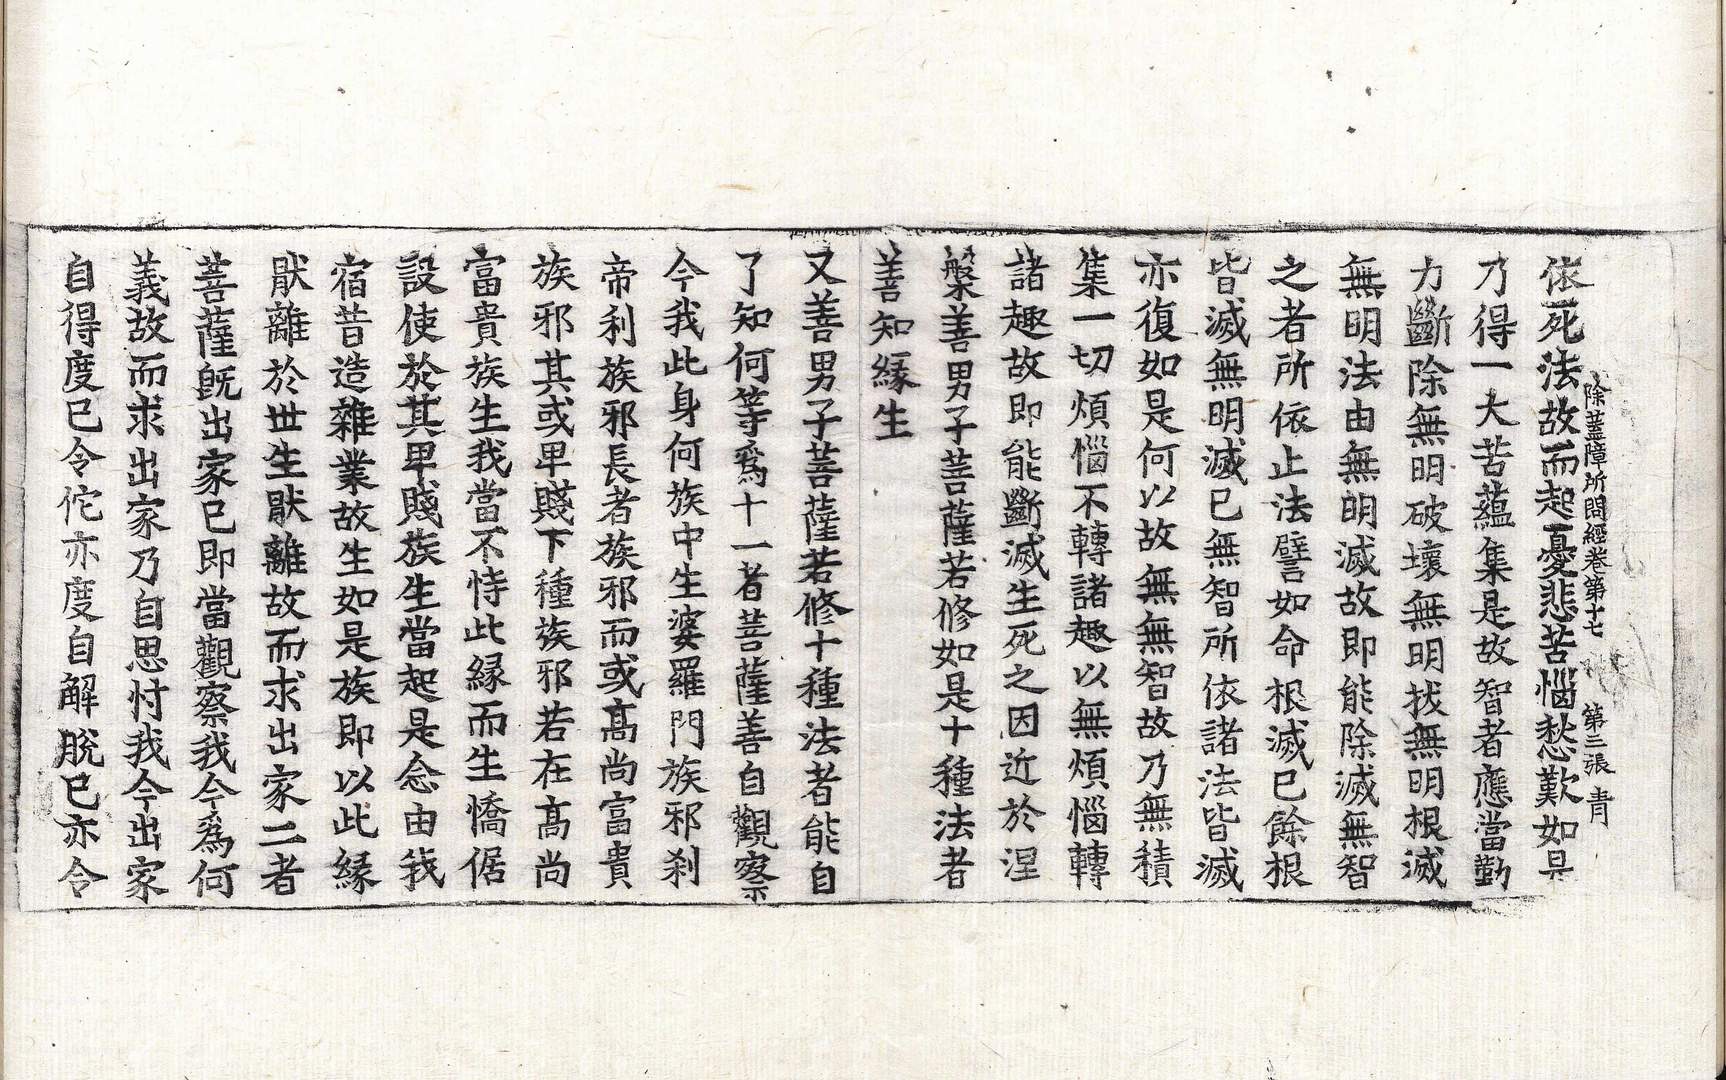 除蓋障所問經卷第十七 第三張 青
依死法故而起憂悲苦惱愁歎如是
乃得一大苦蘊集是故智者應當勤
力斷除無明破壞無明拔無明根滅
無明法由無明滅故即能除滅無智
之者所依止法譬如命根滅已餘根
皆滅無明滅已無智所依諸法皆滅
亦復如是何以故無無智故乃無積
集一切煩惱不轉諸趣以無煩惱轉
諸趣故即能斷滅生死之因近於涅
槃善男子菩薩若修如是十種法者
善知緣生
又善男子菩薩若修十種法者能自
了知何等爲十一者菩薩善自觀察
今我此身何族中生婆羅門族邪刹
帝利族邪長者族邪而或髙尚富貴
族邪其或卑賤下種族邪若在髙尚
富貴族生我當不恃此緣而生憍倨
設使於其卑賤族生當起是念由我
宿昔造雜業故生如是族即以此緣
猒離於世生猒離故而求出家二者
菩薩旣出家已即當觀察我今爲何
義故而求出家乃自思忖我今出家
自得度已令佗亦度自解脫已亦令